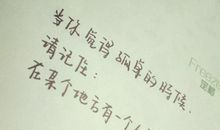 当你觉得孤单的时候.
请记住:
在某个地方有一个
Freez
定格